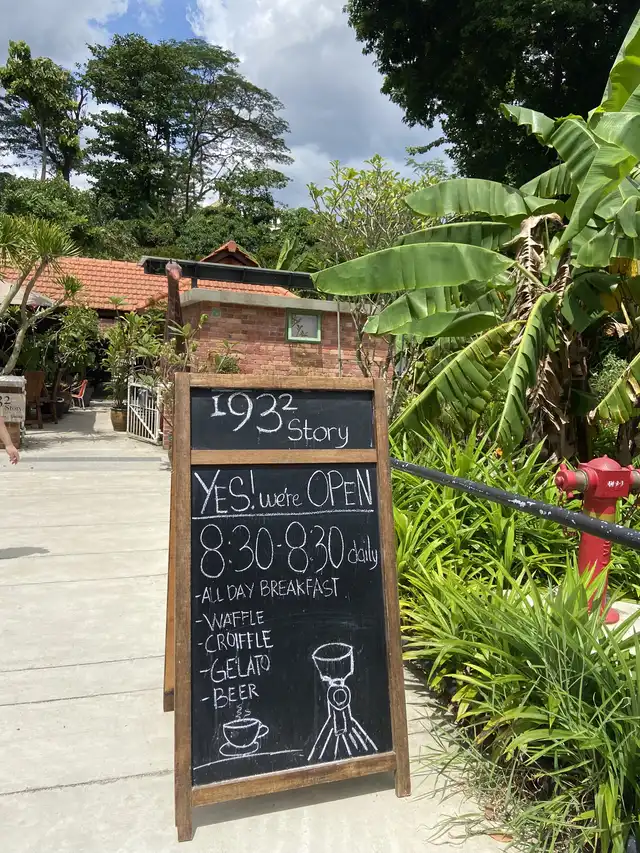 1932
Story
YES! we're OPEN
8:30-8:30 daily
-ALL DAY BREAKFAST
-WAFFLE
-CROIFFLE
-GELATO
-BEER